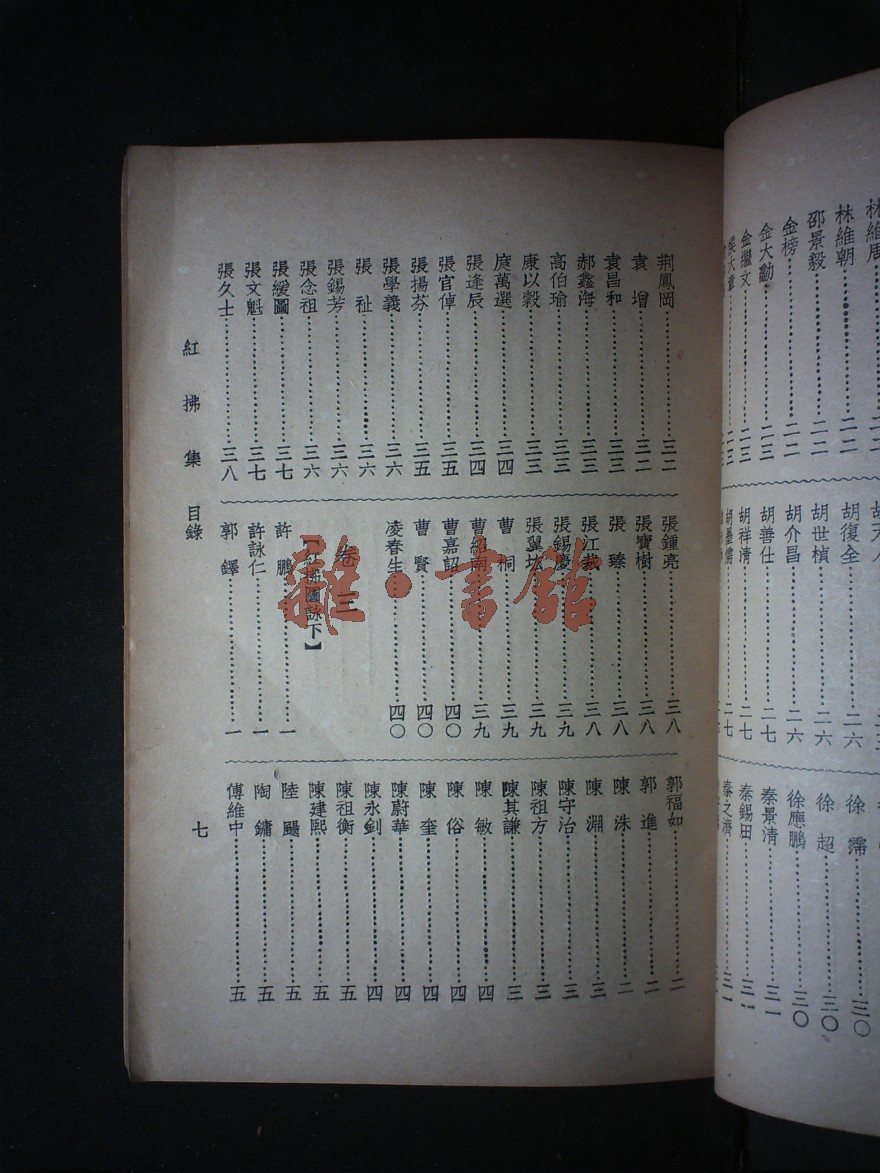 林維周
林維朝……二二
邵景毅……二二
金榜……二二
金大勳……二三
金繼文……二三
胡復全……二六
胡世楨……二六
胡介昌……二六
胡善仕……二七
胡祥清……二七
徐霈……三〇
徐超……三〇
徐應鵬……三〇
秦景清……三一
秦錫田
秦之濟……三一
荆鳳岡……三二
袁增……三二
袁昌和……三三
郝鑫海……三三
高伯瑜……三三
康以穀……三三
庹萬選……三四
張逢辰……三四
張官倬……三五
張揚芬……三五
張學義……三六
張祉……三六
張錫芳……三六
張念祖……三六
張緩圖……三七
張文魁……三七
張久士……三八
張鍾亮……三八
張寶樹……三八
張臻……三八
張江裁……三八
張錫慶……三九
張翼坛……三九
曹桐……三九
曹紹南……三九
曹嘉詔……四〇
曹賢……四〇
凌春生……四〇
卷三
【紅拂圖詠下】
許鵬……一
許詠仁……一
郭鐸……一
郭福如……二
郭進……二
陳洙……二
陳淵……三
陳守治……三
陳祖方……三
陳其謙……三
陳敏……四
陳俗……四
陳奎……四
陳蔚華……四
陳永釗……四
陳祖衡……五
陳建熙……五
陸颺……五
陶鏞……五
傅維中……五
紅拂集 目錄
七
雜·書館